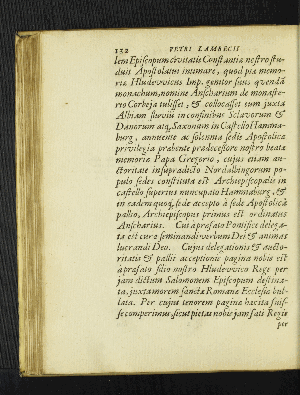 132 PETRI LAMBECII
lem Episcopum civitatis Constantia nostro stu-
duit Apostolatui intimare, quod pia memo-
ria Hludewvicus Imp. genitor suus quendã
monachum, nomine Anscharium de monaste-
rio Corbeja tulisset, & collocasset eum juxta
Albiam fluviũ in confinibus Sclavorum &
Danorum atq; Saxonum in Castello Hamma-
burg, annuente ac solenniâ sedis Apostolicæ
privilegia præbente prædecessore nostro beatæ
memoriæ Papa Gregorio, cujus etiam au-
ctoritate in supradicto Nordalbingorum po-
pulo sedes constituta est Archiepiscopalis in
castello supertus nuncupato Hammaburg, &
in eadem quoq; sede accepto à sede Apostolicâ
pallio, Archiepiscopus primus est ordinatus
Anscharius. Cui à præfato Pontifice delega-
ta est cura seminandi verbum Dei & animas
lucrandi Deo. Cujus delegationis & aucto-
ritatis & pallii acceptionis pagina nobis est
à præfato filio nostro Hludewico Rege per
jam dictum Salomonem Episcopum destina-
ta, juxta morem sanctæ Romanæ Ecclesiæ bul-
lata. Per cujus tenorem paginæ hæc ita fuis-
se comperimus, sicut pietas nobis jam fati Regis
per